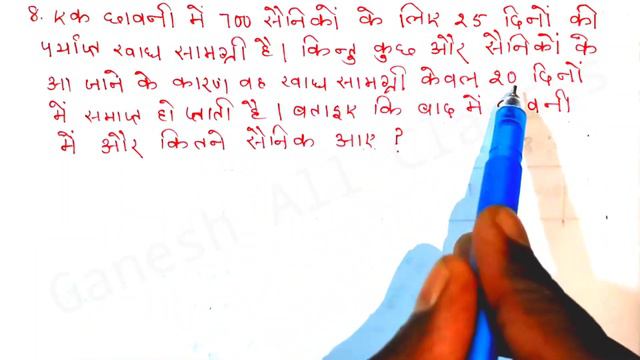 8. एक छावनी में 700 सैनिकों के लिए 25 दिनों की
पर्याप्त खाद्य सामग्री है। किन्तु कुछ और सैनिकों के
आ जाने के कारण वह खाद्य सामग्री केवल 20 दिनों
में समाप्त हो जाती है। बताइए कि बाद में
में और कितने सैनिक आए ?
Ganesh All Classes